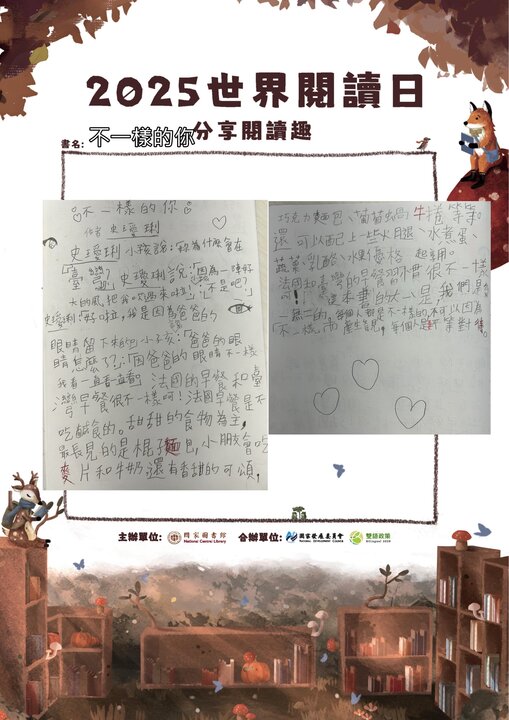 2025世界閱讀日
分享閱讀趣
書名:不一樣的你
不一樣的你
作者 史璦琍
史璦琍小孩說:你為什麼會在
「臺灣」史璦琍說:「因為一陣好
大的風把我吹過來啦!」「不是吧!」
史璦琍:「好啦,我是因為爸爸的
眼睛留下來的」小孩:「爸爸的眼
睛怎麼了?」「因爸爸的眼睛不一樣
我看一直看一直看
法國的早餐和臺
灣早餐很不一樣呵!法國早餐是不
吃鹹食的。甜甜的食物為主,
最長見的是棍子麵包,小朋會吃
麥片和牛奶還有香甜的可頌,
巧克力麵包、葡萄蝸牛捲等等。
還可以配上一些火腿、水煮蛋
蔬菜、乳酪、水果、優格 起享用。
法國和臺灣的早餐習慣很不一樣
呵!
這本書的大一是,我們是
一樣的,每個人都是不一樣的,不可以因為
「不一樣」而產生意見,每個人是平等對待。
主辦單位: 國家圖書館 National Central Library 合辦單位: 國家發展委員會 NATIONAL DEVELOPMENT COUNCIL 雙語政策 Bilingual 2030